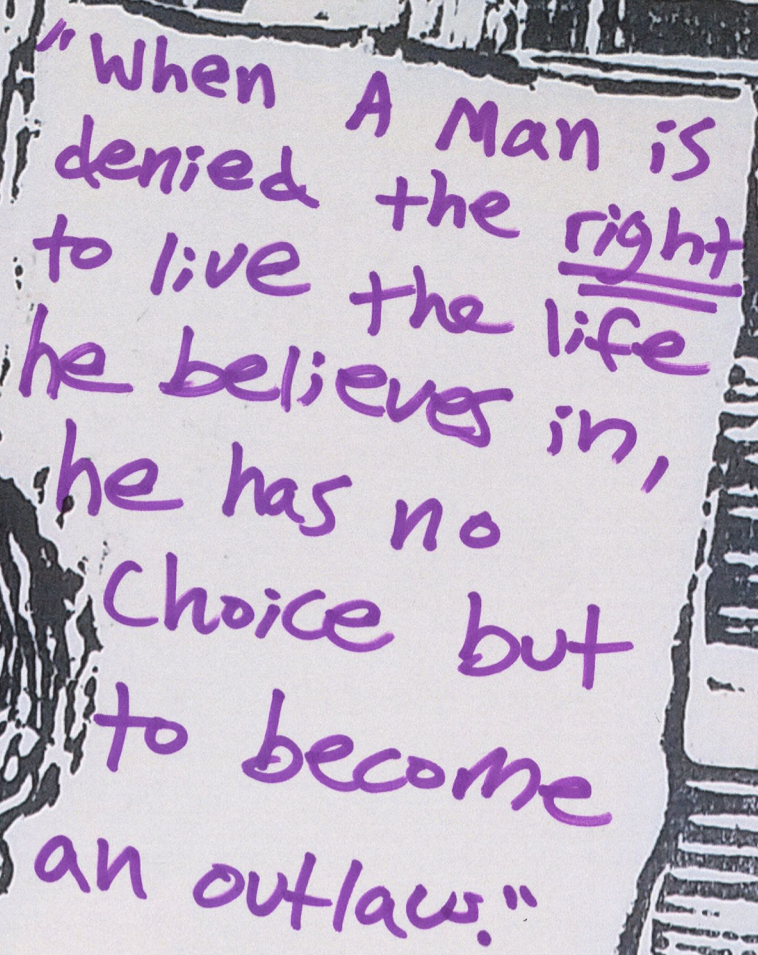 "When A Man is
denied the right
to live the life
he believes in,
he has no
Choice but
to become
an outlaw."